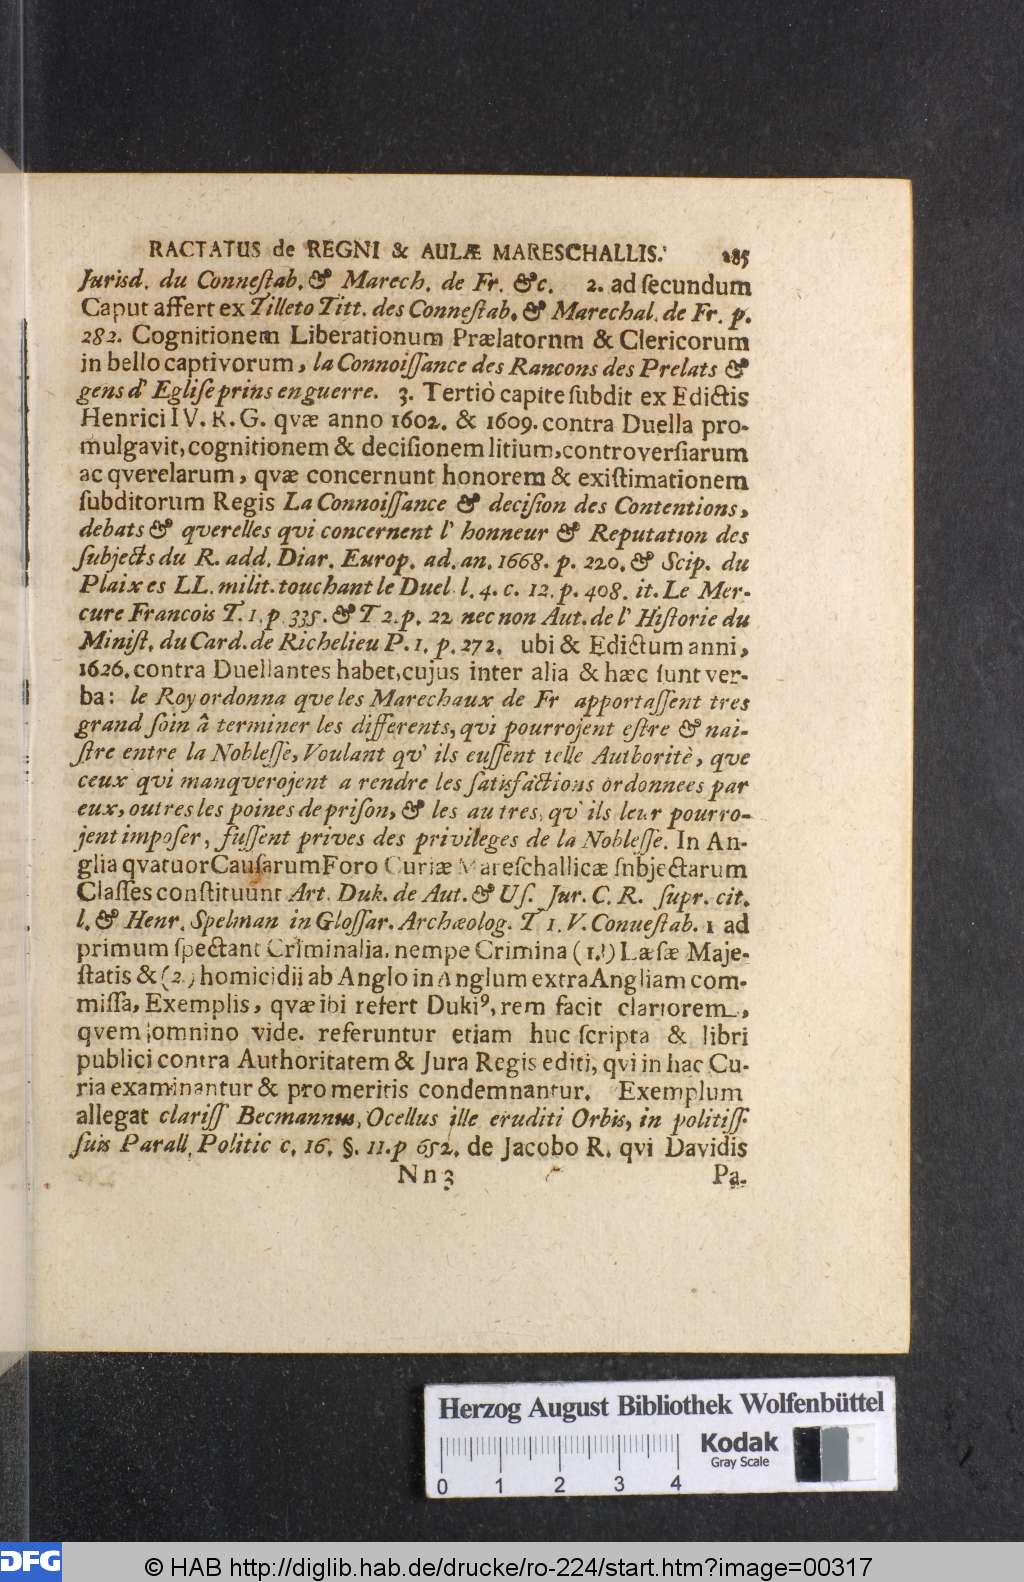 RACTATUS de REGNI & AULÆ MARESCHALLIS. 285
Jurisd. du Conneſtab. & Marech. de Fr. &c. 2. ad ſecundum
Caput affert ex Tilleto Titt. des Conneſtab. & Marechal. de Fr. p.
282. Cognitionem Liberationum Prælatornm & Clericorum
in bello captivorum, la Connoiſſance des Rancons des Prelats &
gens d' Egliſe prins en guerre. 3. Tertiò capite ſubdit ex Edictis
Henrici IV. R. G. qvæ anno 1602. & 1609. contra Duella pro-
mulgavit, cognitionem & deciſionem litium, controverſiarum
ac qverelarum, qvæ concernunt honorem & exiſtimationem
ſubditorum Regis La Connoiſſance & deciſion des Contentions,
debats & qverelles qvi concernent l' honneur & Reputation des
ſubjects du R. add. Diar. Europ. ad. an. 1668. p. 220. & Scip. du
Plaix es LL. milit. touchant le Duel l. 4. c. 12. p. 408. it. Le Mer-
cure Francois T. 1. p 335. & T 2. p. 22 nec non Aut. de l' Hiſtorie du
Miniſt. du Card. de Richelieu P. 1. p. 272. ubi & Edictum anni,
1626. contra Duellantes habet, cujus inter alia & hæc ſunt ver-
ba: le Roy ordonna qve les Marechaux de Fr apportaſſent tres
grand ſoin â terminer les differents, qvi pourrojent eſtre & nai-
ſtre entre la Nobleſſe, Voulant qv' ils euſſent telle Authoritè, qve
ceux qvi manqverojent a rendre les ſatisfactions ordonnees par
eux, outres les poines de priſon, & les autres, qv' ils leur pourro-
jent impoſer, fuſſent prives des privileges de la Nobleſſe. In An-
glia qvatuor Cauſarum Foro Curiæ Mareſchallicæ ſnbjectarum
Claſſes conſtituunt Art. Duk. de Aut. & Uſ. Jur. C. R. ſupr. cit.
l. & Henr. Spelman in Gloſſar. Archæolog. T 1. V. Conueſtab. 1 ad
primum ſpectant Criminalia. nempe Crimina (1.) Læſæ Maje-
ſtatis & (2.) homicidii ab Anglo in Anglum extra Angliam com-
miſſa, Exemplis, qvæ ibi refert Dukiꝰ, rem facit clariorem,
qvem omnino vide. referuntur etiam huc ſcripta & libri
publici contra Authoritatem & Jura Regis editi, qvi in hac Cu-
ria examinantur & pro meritis condemnantur. Exemplum
allegat clariſſ Becmannus, Ocellus ille eruditi Orbis, in politiſſ.
ſuis Parall. Politic c. 16. §. 11. p 652. de Jacobo R. qvi Davidis
Nn 3 Pa.
Herzog August Bibliothek Wolfenbüttel
Kodak
Gray Scale
0 1 2 3 4
DFG © HAB http://diglib.hab.de/drucke/ro-224/start.htm?image=00317